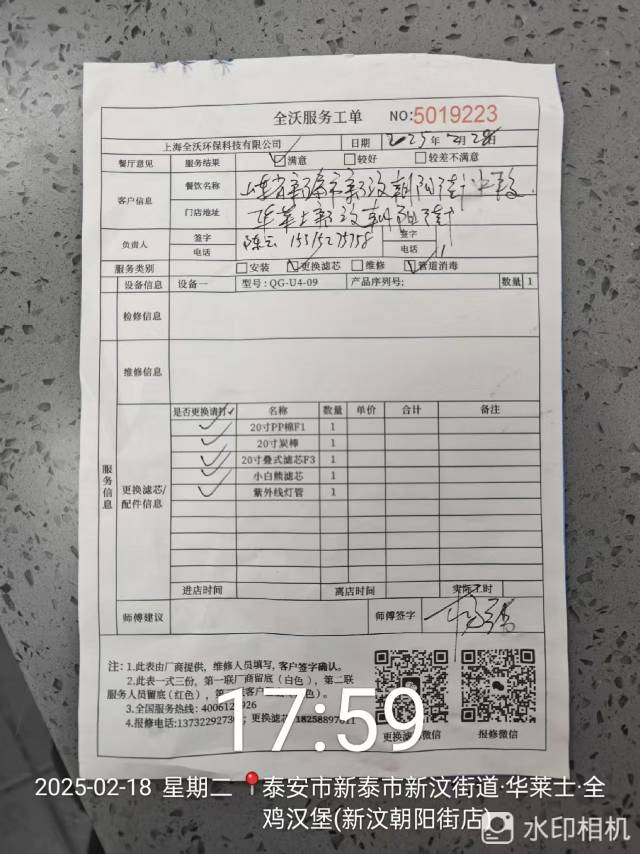 全沃服务工单 NO:5019223
上海全沃环保科技有限公司 日期 2025年2月
餐厅意见 服务结果 ☑满意 □较好 □较差不满意
客户信息 餐饮名称 山东省新泰市新汶朝阳街
门店地址 华莱士新汶朝阳街
负责人 签字 电话 陈云 15315275758 签字 电话
服务类别 □安装 ☑更换滤芯 □维修 ☑管道消毒
设备信息 设备一 型号:QG-U4-09 产品序列号; 数量 1
检修信息
维修信息
服务信息
更换滤芯/配件信息
是否更换请打✓ 名称 数量 单价 合计 备注
✓ 20寸PP棉F1 1
✓ 20寸炭棒 1
✓ 20寸叠式滤芯F3 1
✓ 小白熊滤芯 1
✓ 紫外线灯管 1
进店时间 离店时间 实际工时
师傅建议 师傅签字
注: 1.此表由厂商提供，维修人员填写, 客户签字确认。
2.此表一式三份，第一联厂商留底（白色），第二联
服务人员留底（红色），
3.全国服务热线: 4006
4.报修电话:1373229273 更换滤芯
更换滤芯微信 报修微信
17:59
2025-02-18 星期二 泰安市新泰市新汶街道·华莱士·全
鸡汉堡(新汶朝阳街店)
水印相机